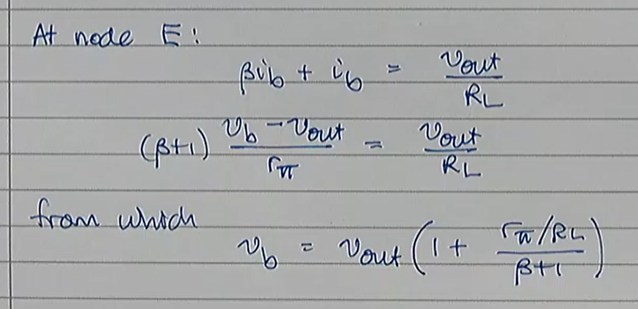 At node E:
βi_b + i_b = v_out / R_L
(β+1) (v_b - v_out) / r_π = v_out / R_L
from which
v_b = v_out (1 + (r_π/R_L) / (β+1))